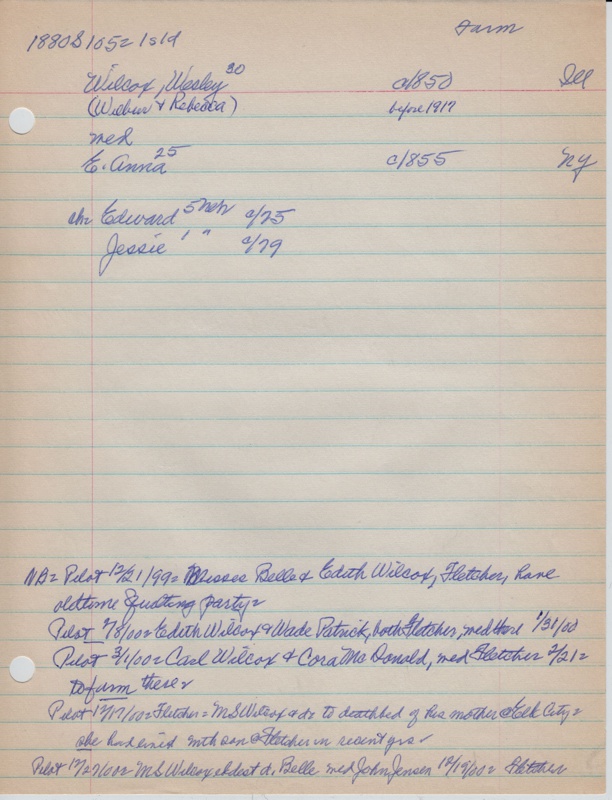 1880S 105= Isld Farm
Wilcox, Wesley 30 c/1850 Ill
(Wilbur & Rebecca) before 1917
med
E. Anna 25 c/1855 NY
ch= Edward 5 Neb c/75
Jessie 1 " c/79
NB= Pilot 12/21/99= Misses Belle & Edith Wilcox, Fletcher, have
oldtime quilting party=
Pilot 2/8/00= Edith Wilcox & Wade Patrick, both Fletcher, med 1/31/00
Pilot 3/1/00= Carl Wilcox & Cora McDonald, med Fletcher 2/21=
to farm there=
Pilot 12/17/00= Fletcher= MS Wilcox & to deathbed of his mother @ Elk City=
she had lived with son @ Fletcher in recent yrs
Pilot 12/27/00= MS Wilcox eldest d. Belle med John Jensen 12/19/00= Fletcher